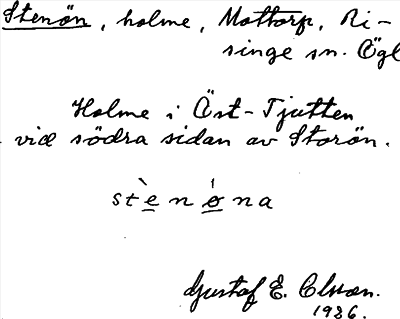 Stenön, holme, Mottorp, Ri-
singe sn. Ögl
Holme i Öst-Tjutten
vid södra sidan av Storön.
stèn ǿna
Gustaf E. Olsson.
1936.